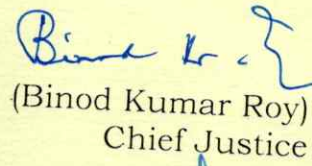 Binod Kr.
(Binod Kumar Roy)
Chief Justice